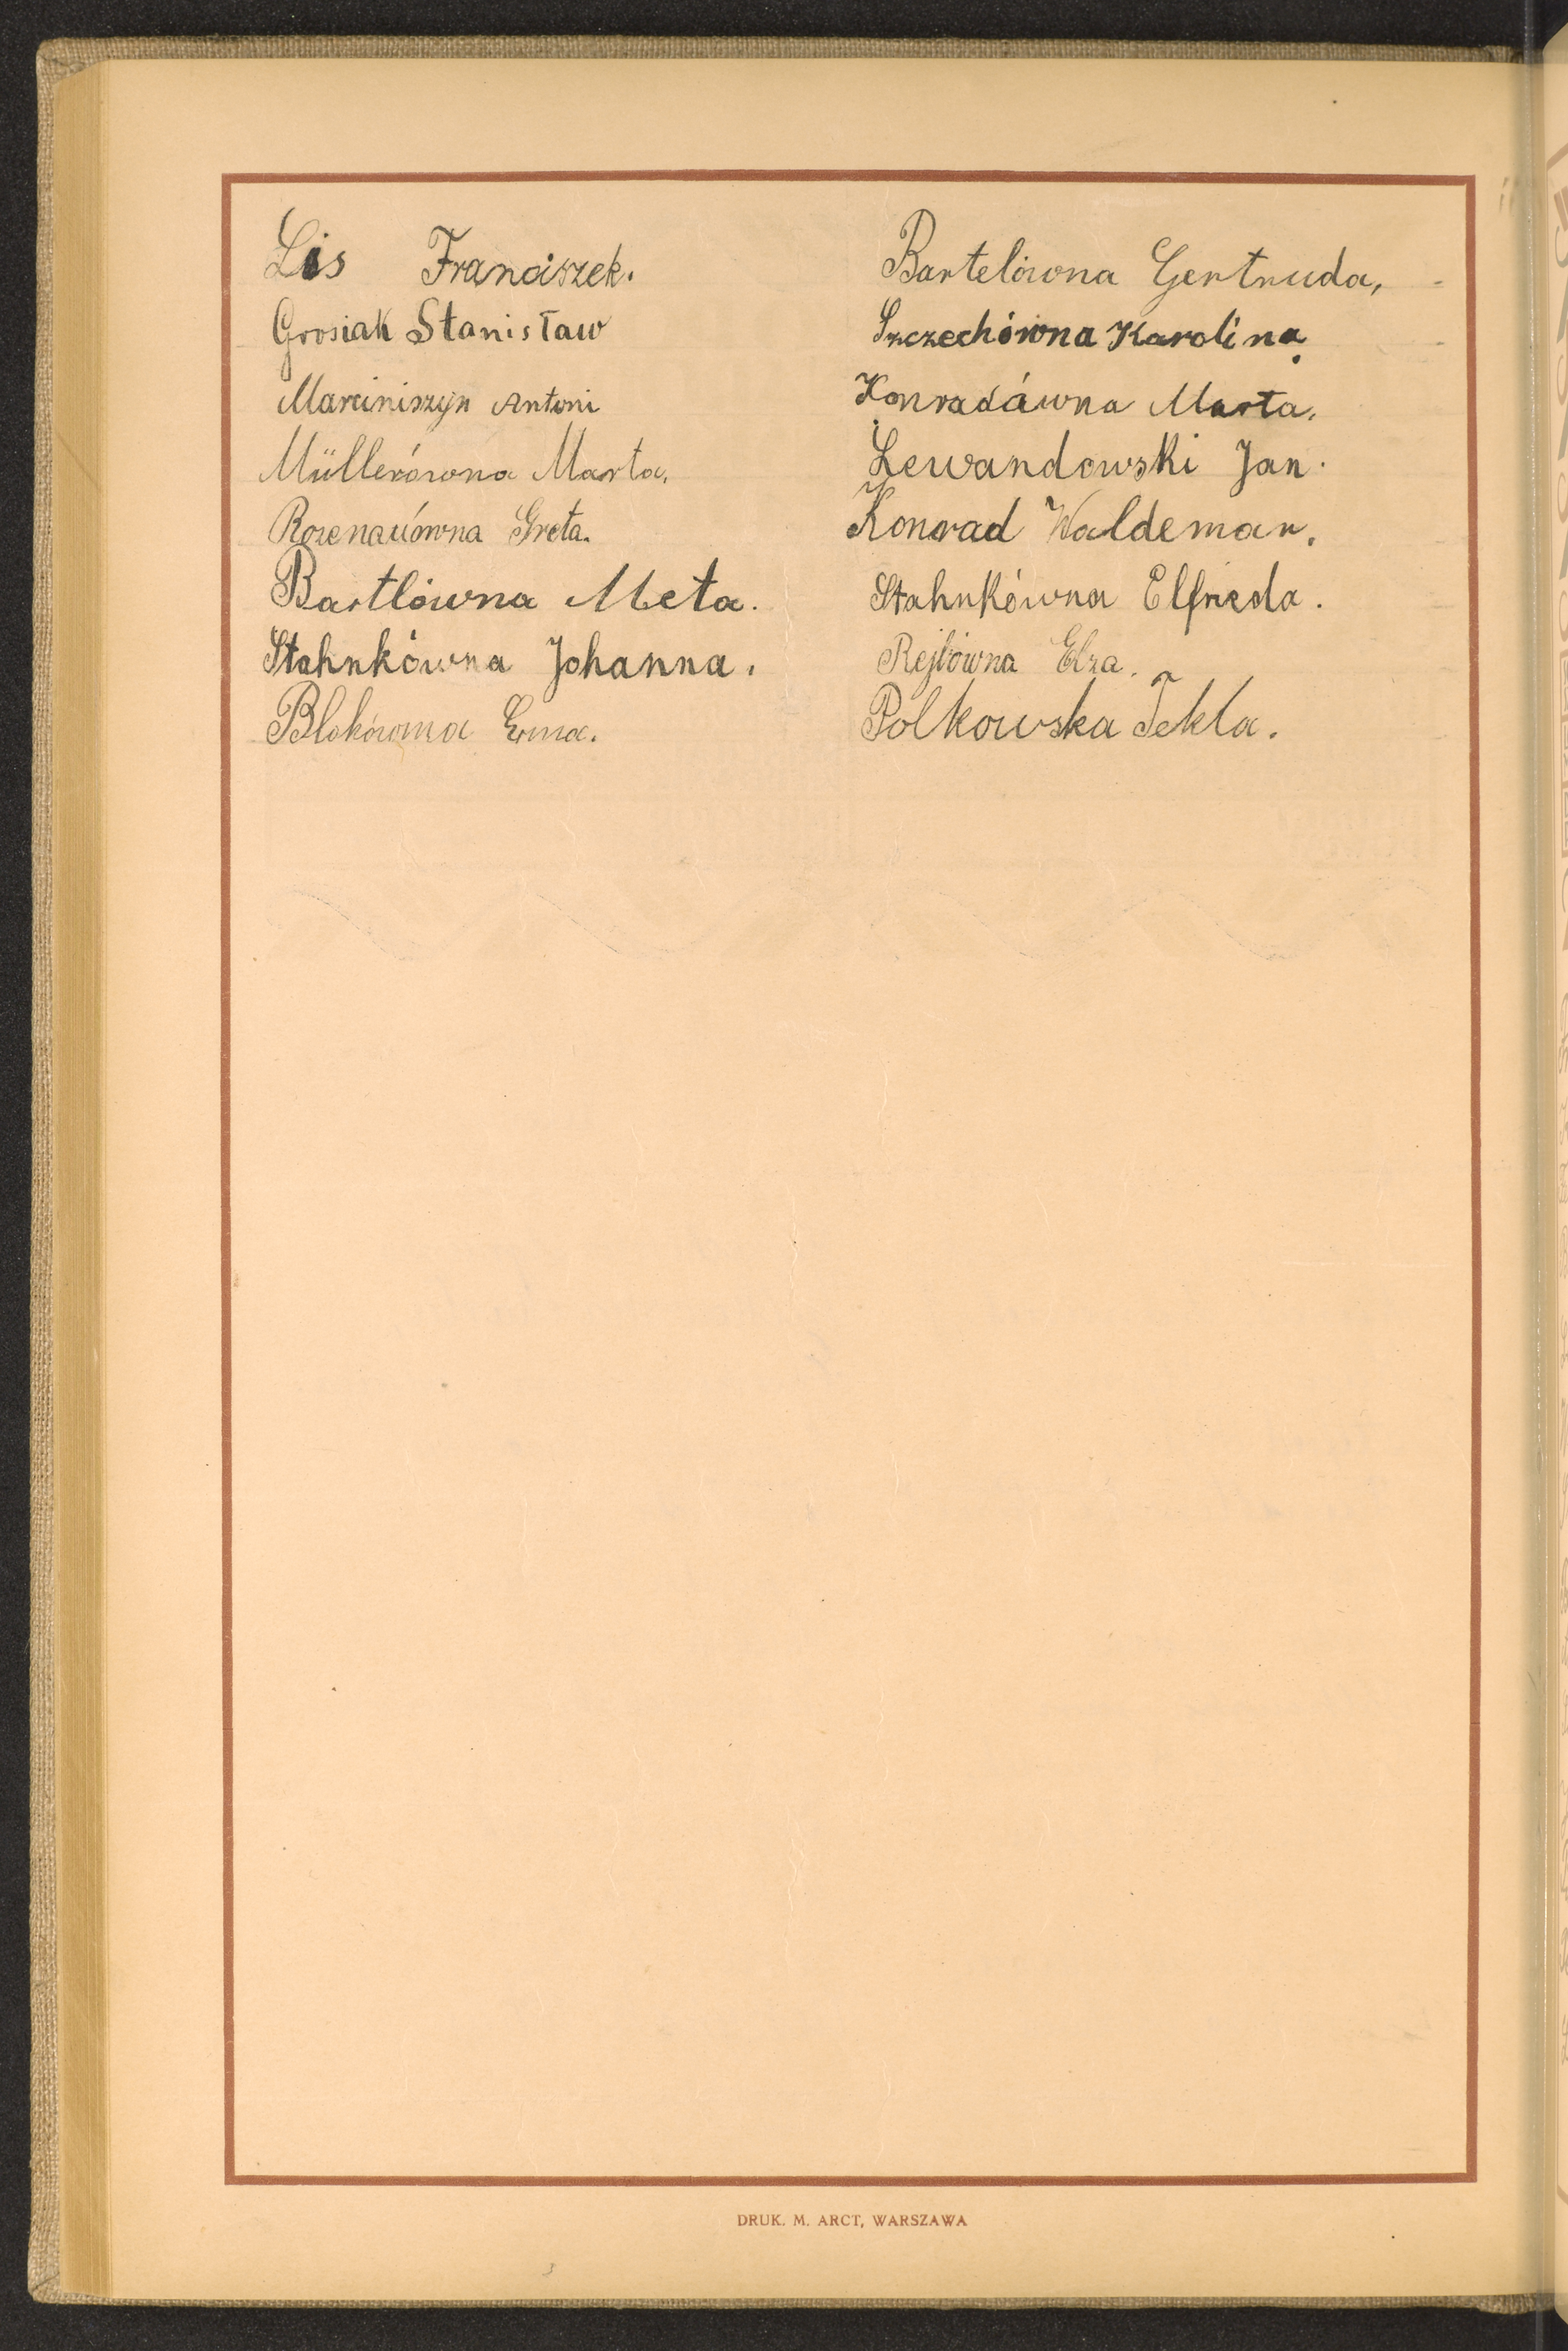 Lis Franciszek.
Grosiak Stanisław
Marciniszyn Antoni
Müllerówna Marta.
Rozenauówna Greta.
Bartlówna Meta.
Stahnkówna Johanna.
Blokówna Erna.
Bartelówna Gertruda,
Szczechówna Karolina.
Konradówna Marta.
Lewandowski Jan.
Konrad Waldemar.
Stahnkówna Elfrieda.
Rejlówna Elza.
Polkowska Tekla.
DRUK. M. ARCT, WARSZAWA